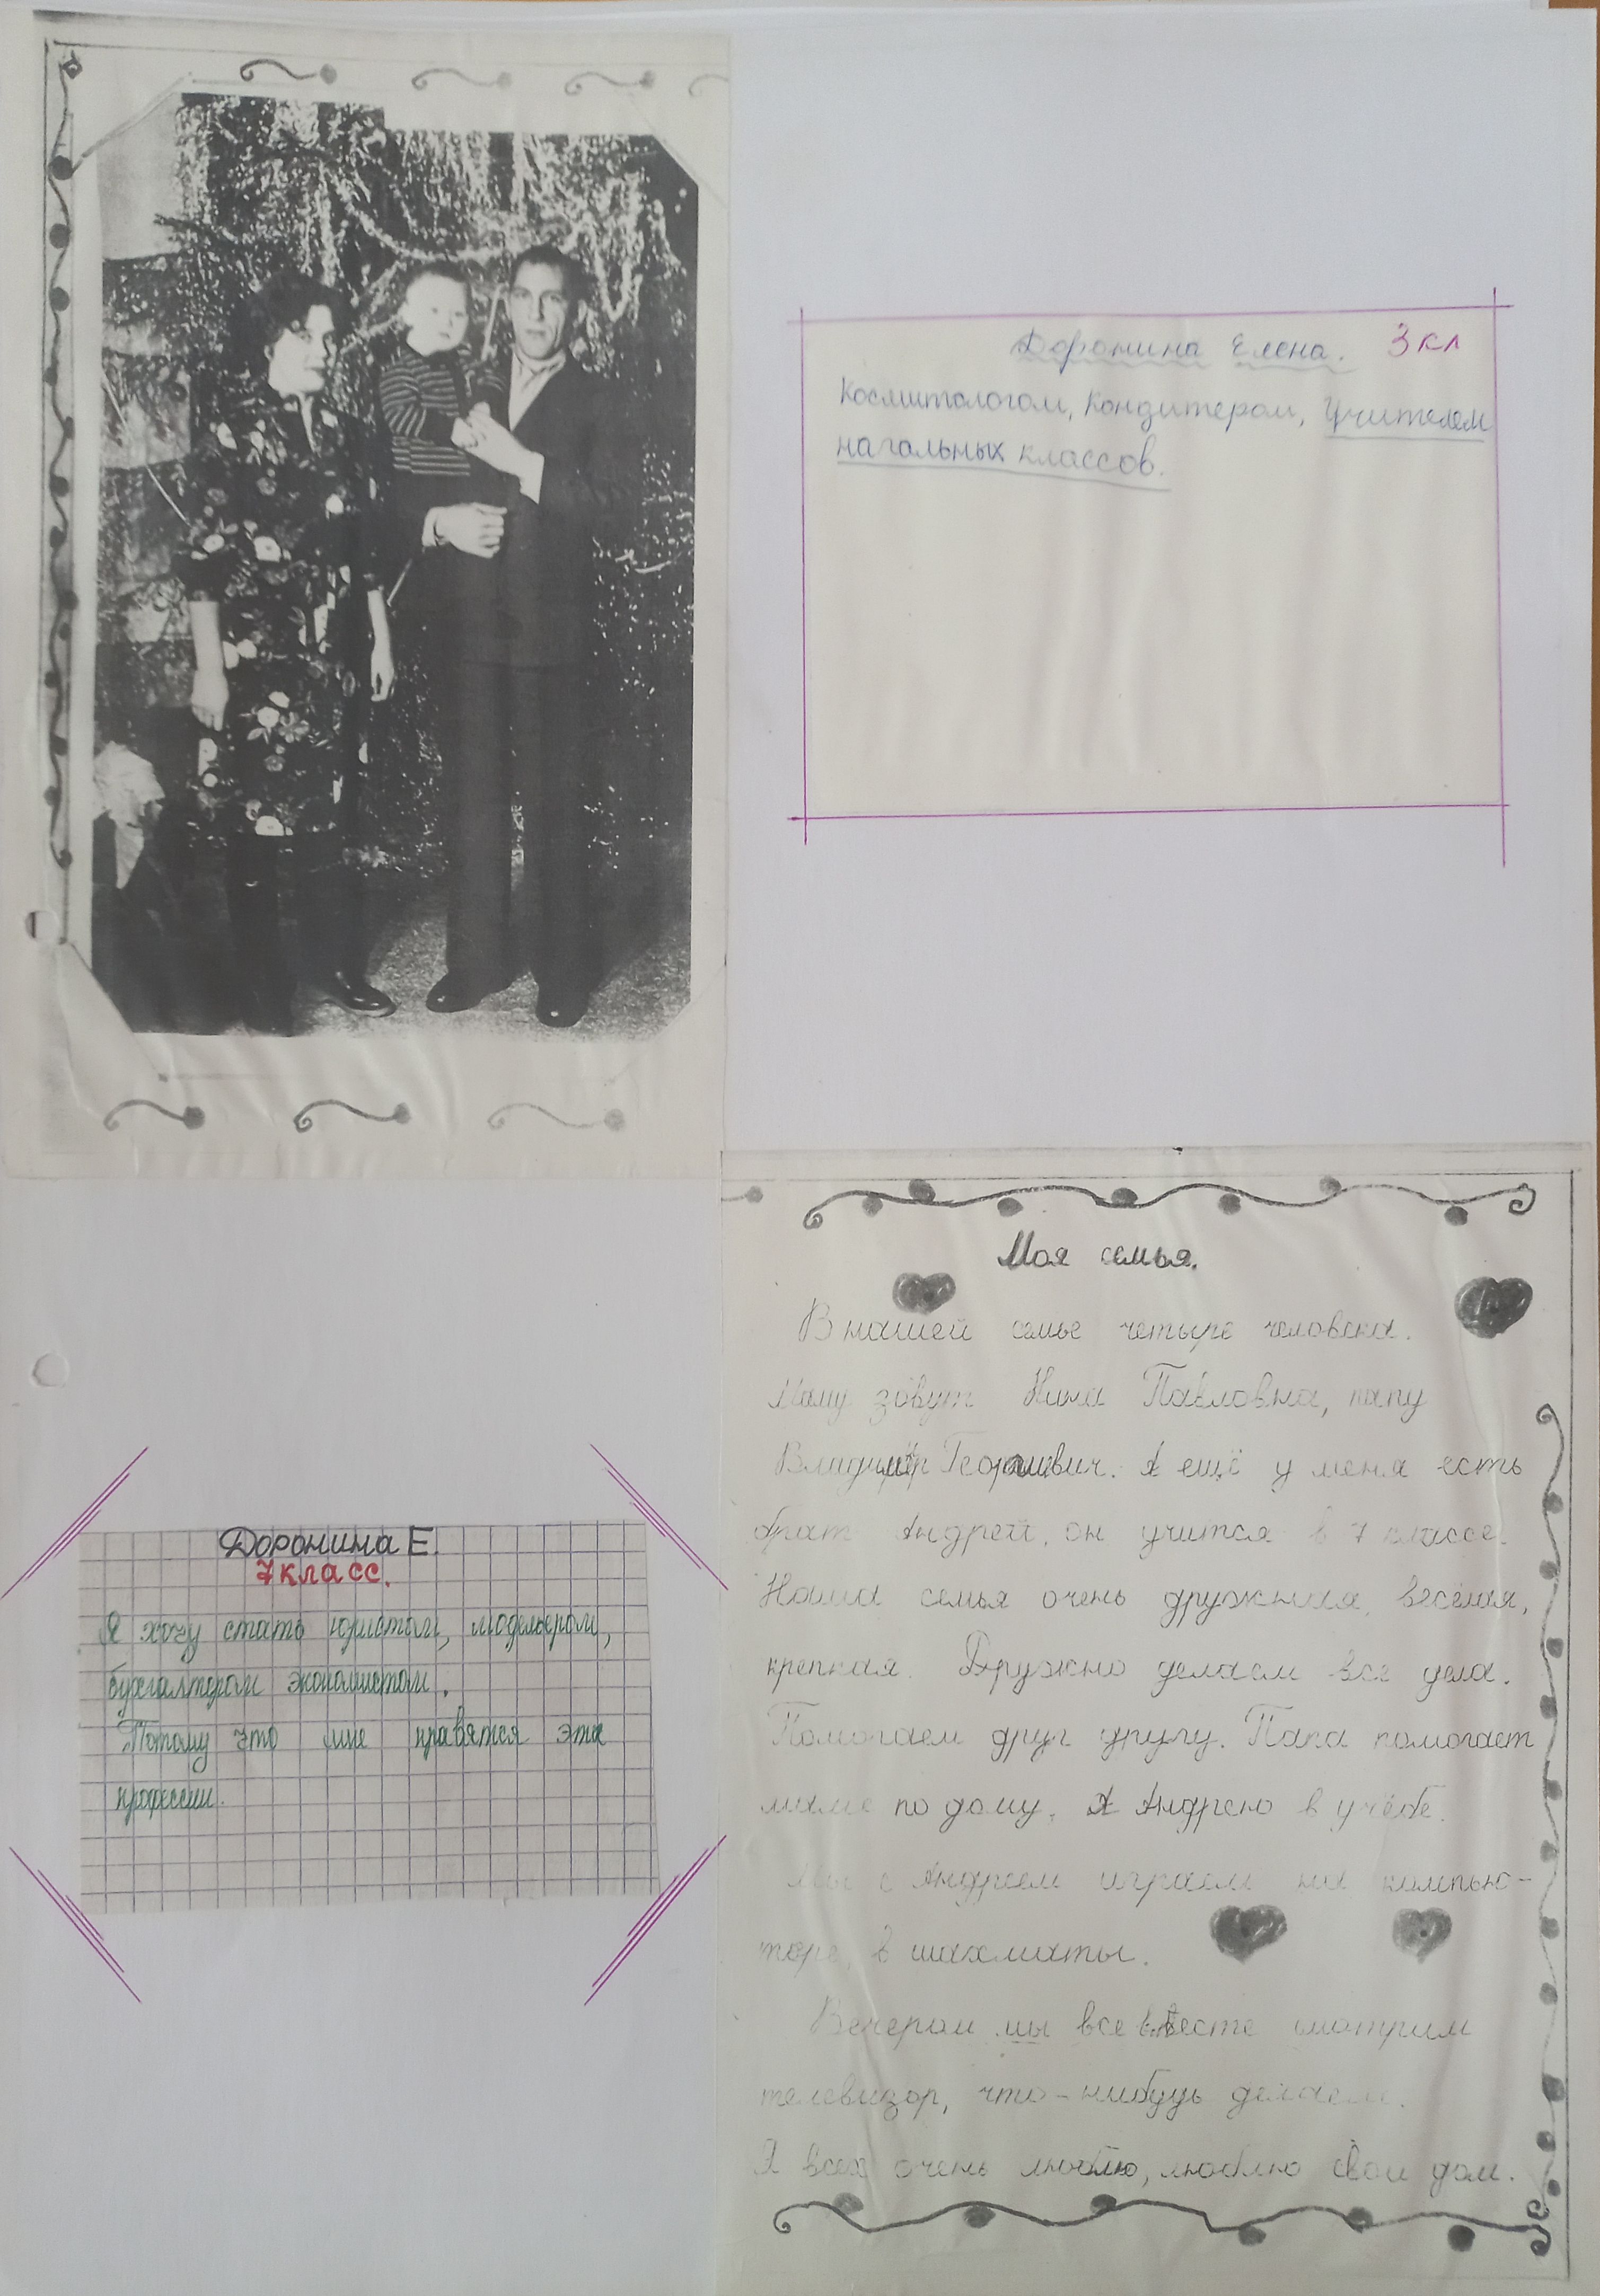 Доронина Елена. 3 кл
Косметологом, Кондитером, Учителем
начальных классов.
Доронина Е.
7 класс.
Я хочу стать юристом, модельером,
бухгалтером экономистом.
Потому что мне нравятся эти
профессии.
Моя семья.
В нашей семье четыре человека.
Маму зовут Нина Павловна, папу
Владимир Георгиевич. А ещё у меня есть
брат Андрей, он учится в 7 классе.
Наша семья очень дружная, весёлая,
крепкая. Дружно делаем все дела.
Помогаем друг другу. Папа помогает
маме по дому, А Андрею в учёбе.
Мы с Андреем играем на компью-
тере, в шахматы.
Вечером мы все вместе смотрим
телевизор, что-нибудь делаем.
Я всех очень люблю, люблю свой дом.